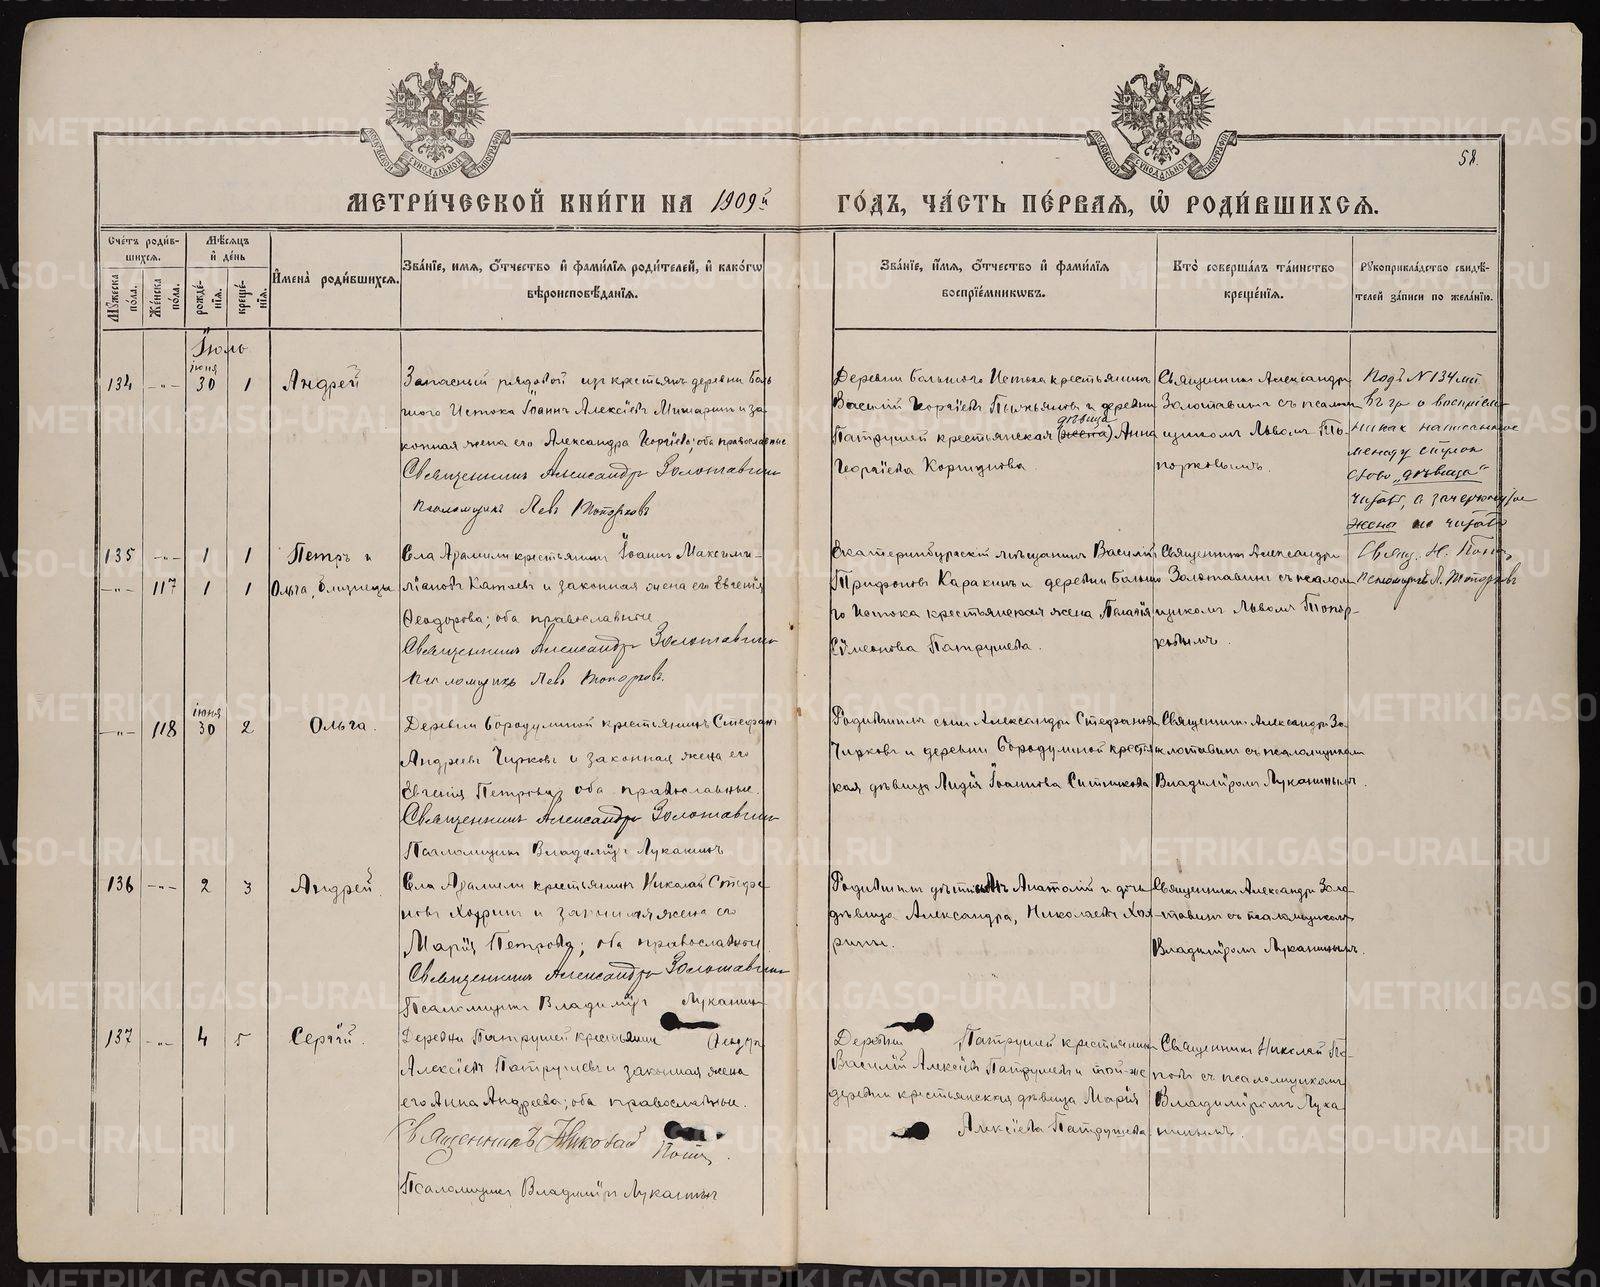 58.
МЕТРИ́ЧЕСКОЙ КНИ́ГИ НА 1909й ГО́ДЪ, ЧА́СТЬ ПЕ́РВАЯ, Ѡ҆ РОДИ́ВШИХСЯ.
Сче́тъ роди́в-
шихся.
Мѣ́сяцъ
и҆ де́нь
Мꙋ́жеска по́ла.
Же́нска по́ла.
рожде́-
нїѧ.
креще́-
нїѧ.
И҆мена̀ роди́вшихся.
Зва́нїе, имѧ, ѻ҆́тчество и҆ фами́лїѧ роди́телей, и҆ како́гѡ
вѣроисповѣ́данїѧ.
Зва́нїе, и҆́мѧ, ѻ҆́тчество и҆ фами́лїѧ
воспрїе́мникѡвъ.
Кто̀ соверша́лъ та́инство
креще́нїѧ.
Рꙋкоприкла́дство свидѣ́-
телей за́писи по жела́нїю.
Іюль
134 -"- іюня 30 1 Андрей
Запасный рядовой изъ крестьянъ деревни Боль
шого Истока Іоаннъ Алексіевъ и за-
конная жена его Александра Георгіева; оба православные
Священникъ Александръ Золотавинъ
Псаломщикъ Левъ Топорковъ
Деревни Большого Истока крестьянинъ
Василій Георгіевъ и деревни
дѣвица
Патрушей крестьянская (жена) Анна
Георгіева Коршунова.
Священникъ Александръ
Золотавинъ съ псалом
щикомъ Львомъ То-
порковымъ.
Подъ №134мъ
въ гр. о воспріем-
никахъ написанное
между строкъ
слово „дѣвица"
читать, а зачеркнутое
жена не читать
Свящ. Н. Поповъ
Псаломщикъ Л. Топорковъ
135 -"- 1 1 Петръ и
-"- 117 1 1 Ольга, близнецы
Села Арамили крестьянинъ Іоаннъ Максими-
ліановъ и законная жена его Евгенія
Феодорова; оба православные
Священникъ Александръ Золотавинъ
Псаломщикъ Левъ Топорковъ.
Екатеринбургскій мѣщанинъ Василій
Трифоновъ Каракинъ и деревни Больш-
го Истока крестьянская жена Пелагія
Сѵмеонова Патрушева.
Священникъ Александръ
Золотавинъ съ псалом
щикомъ Львомъ Топор-
ковымъ.
-"- 118 іюня 30 2 Ольга.
Деревни Бородулиной крестьянинъ Стефанъ
Андреевъ Чирковъ и законная жена его
Евгенія Петрова; оба православные.
Священникъ Александръ Золотавинъ
Псаломщикъ Владиміръ Луканинъ
Родителей сынъ Александръ Стефановъ
Чирковъ и деревни Бородулиной крестьян
кая дѣвица Лидія Іоаннова Ситникова
Священникъ Александръ Зо-
лотавинъ съ псаломщикомъ
Владиміромъ Луканинымъ.
136 -"- 2 3 Андрей.
Села Арамили крестьянинъ Николай Стефа-
новъ и законная жена его
Марія Петрова; оба православные.
Священникъ Александръ Золотавинъ
Псаломщикъ Владиміръ Луканинъ
Анатолій и дочь
дѣвица Александра, Николаевы
Священникъ Александръ Золо-
тавинъ съ псаломщикомъ
Владиміромъ Луканинымъ.
137 -"- 4 5 Сергій.
Деревни Патрушей крестьянинъ Феодоръ
Алексіевъ Патрушевъ и законная жена
его Анна Андреева; оба православные.
Священникъ Николай Поповъ.
Псаломщикъ Владиміръ Луканинъ
Деревни Патрушей крестьянинъ
Василій Алексіевъ Патрушевъ и той-же
деревни крестьянская дѣвица Марія
Алексіева Патрушева
Священникъ Николай По-
повъ съ псаломщикомъ
Владиміромъ Лука
нинымъ.
METRIKI.GASO-URAL.RU